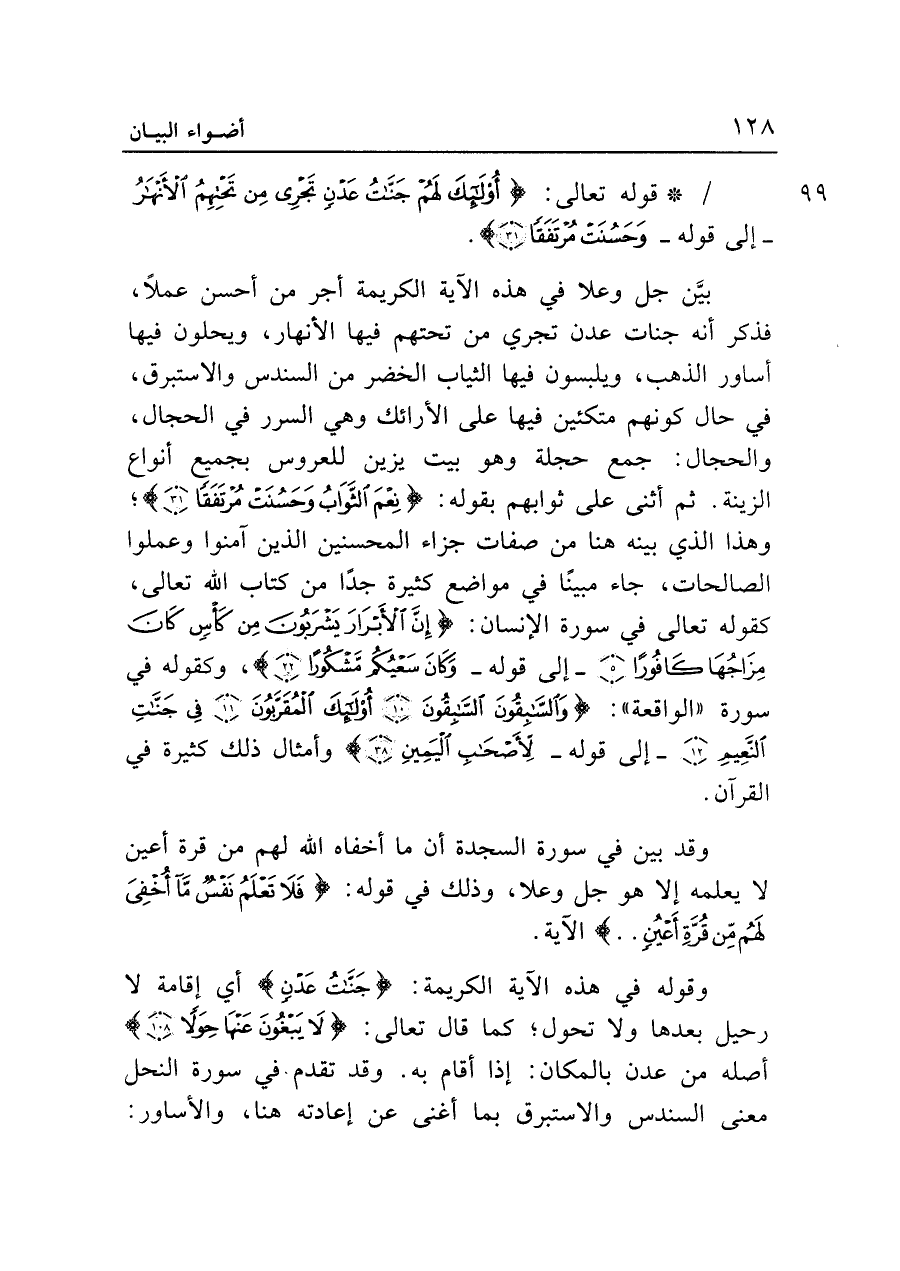 ١٢٨ أضـواء البيـان
٩٩ / * قوله تعالى: ﴿ أُوْلَٰٓئِكَ لَهُمْ جَنَّٰتُ عَدْنٖ تَجْرِي مِن تَحْتِهِمُ ٱلْأَنْهَٰرُ
ـ إلى قوله ـ وَحَسُنَتْ مُرْتَفَقٗا ٣١﴾.
بيَّن جل وعلا في هذه الآية الكريمة أجر من أحسن عملاً،
فذكر أنه جنات عدن تجري من تحتهم فيها الأنهار، ويحلون فيها
أساور الذهب، ويلبسون فيها الثياب الخضر من السندس والاستبرق،
في حال كونهم متكئين فيها على الأرائك وهي السرر في الحجال،
والحجال: جمع حجلة وهو بيت يزين للعروس بجميع أنواع
الزينة. ثم أثنى على ثوابهم بقوله: ﴿ نِعْمَ ٱلثَّوَابُ وَحَسُنَتْ مُرْتَفَقٗا ٣١﴾؛
وهذا الذي بينه هنا من صفات جزاء المحسنين الذين آمنوا وعملوا
الصالحات، جاء مبينًا في مواضع كثيرة جدًا من كتاب الله تعالى،
كقوله تعالى في سورة الإنسان: ﴿ إِنَّ ٱلْأَبْرَارَ يَشْرَبُونَ مِن كَأْسٖ كَانَ
مِزَاجُهَا كَافُورًا ٥ ـ إلى قوله ـ وَكَانَ سَعْيُكُم مَّشْكُورًا ٢٢﴾، وكقوله في
سورة «الواقعة»: ﴿ وَٱلسَّٰبِقُونَ ٱلسَّٰبِقُونَ ١٠ أُوْلَٰٓئِكَ ٱلْمُقَرَّبُونَ ١١ فِي جَنَّٰتِ
ٱلنَّعِيمِ ١٢ ـ إلى قوله ـ لِأَصْحَٰبِ ٱلْيَمِينِ ٣٨﴾ وأمثال ذلك كثيرة في
القرآن.
وقد بين في سورة السجدة أن ما أخفاه الله لهم من قرة أعين
لا يعلمه إلا هو جل وعلا، وذلك في قوله: ﴿ فَلَا تَعْلَمُ نَفْسٞ مَّآ أُخْفِيَ
لَهُم مِّن قُرَّةِ أَعْيُنٖ . .﴾ الآية.
وقوله في هذه الآية الكريمة: ﴿جَنَّٰتُ عَدْنٖ﴾ أي إقامة لا
رحيل بعدها ولا تحول؛ كما قال تعالى: ﴿ لَا يَبْغُونَ عَنْهَا حِوَلٗا ١٠٨﴾
أصله من عدن بالمكان: إذا أقام به. وقد تقدم في سورة النحل
معنى السندس والاستبرق بما أغنى عن إعادته هنا، والأساور: